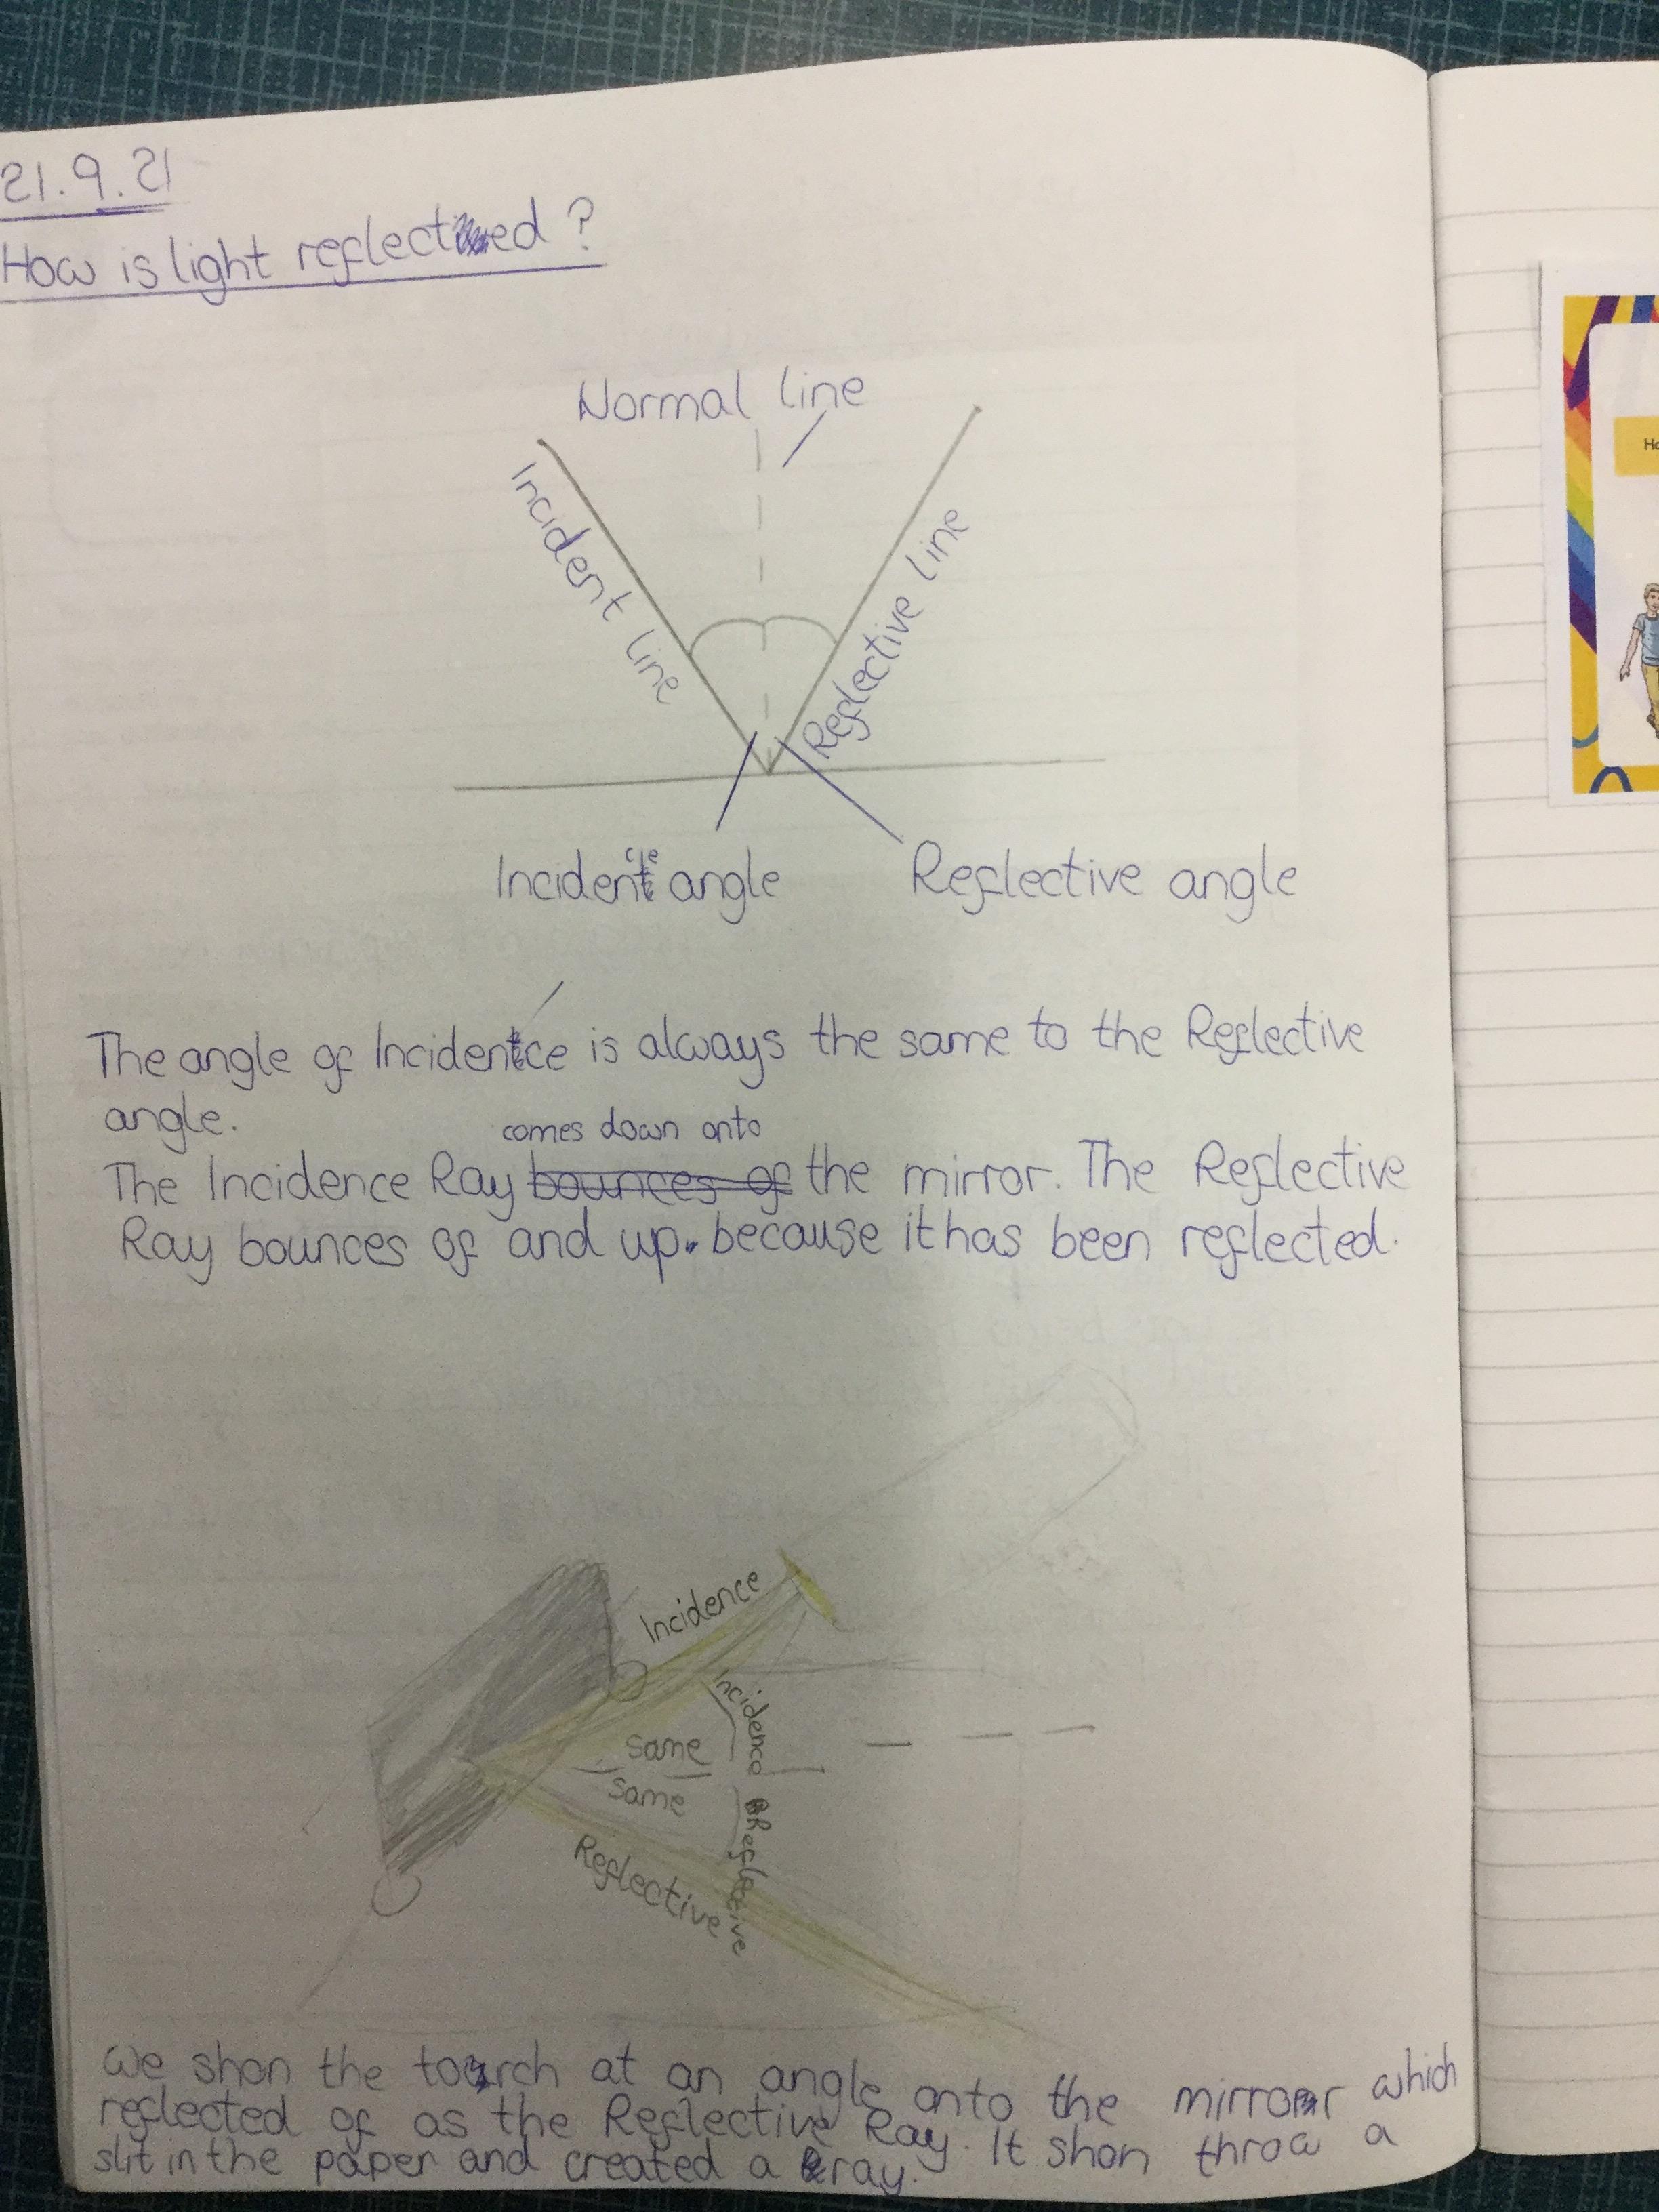 21.9.21
How is light reflected ?
Normal line
Incident line
Reflective line
Incidence angle
Reflective angle
The angle of Incidence is always the same to the Reflective
angle.
comes down onto
The Incidence Ray bounces of the mirror. The Reflective
Ray bounces of and up. because it has been reflected.
Incidence
Incidence
Same
Same
Reflective
Reflective
We shon the torch at an angle onto the mirror which
reflected of as the Reflective Ray. It shon throw a
slit in the paper and created a ray.
Ho